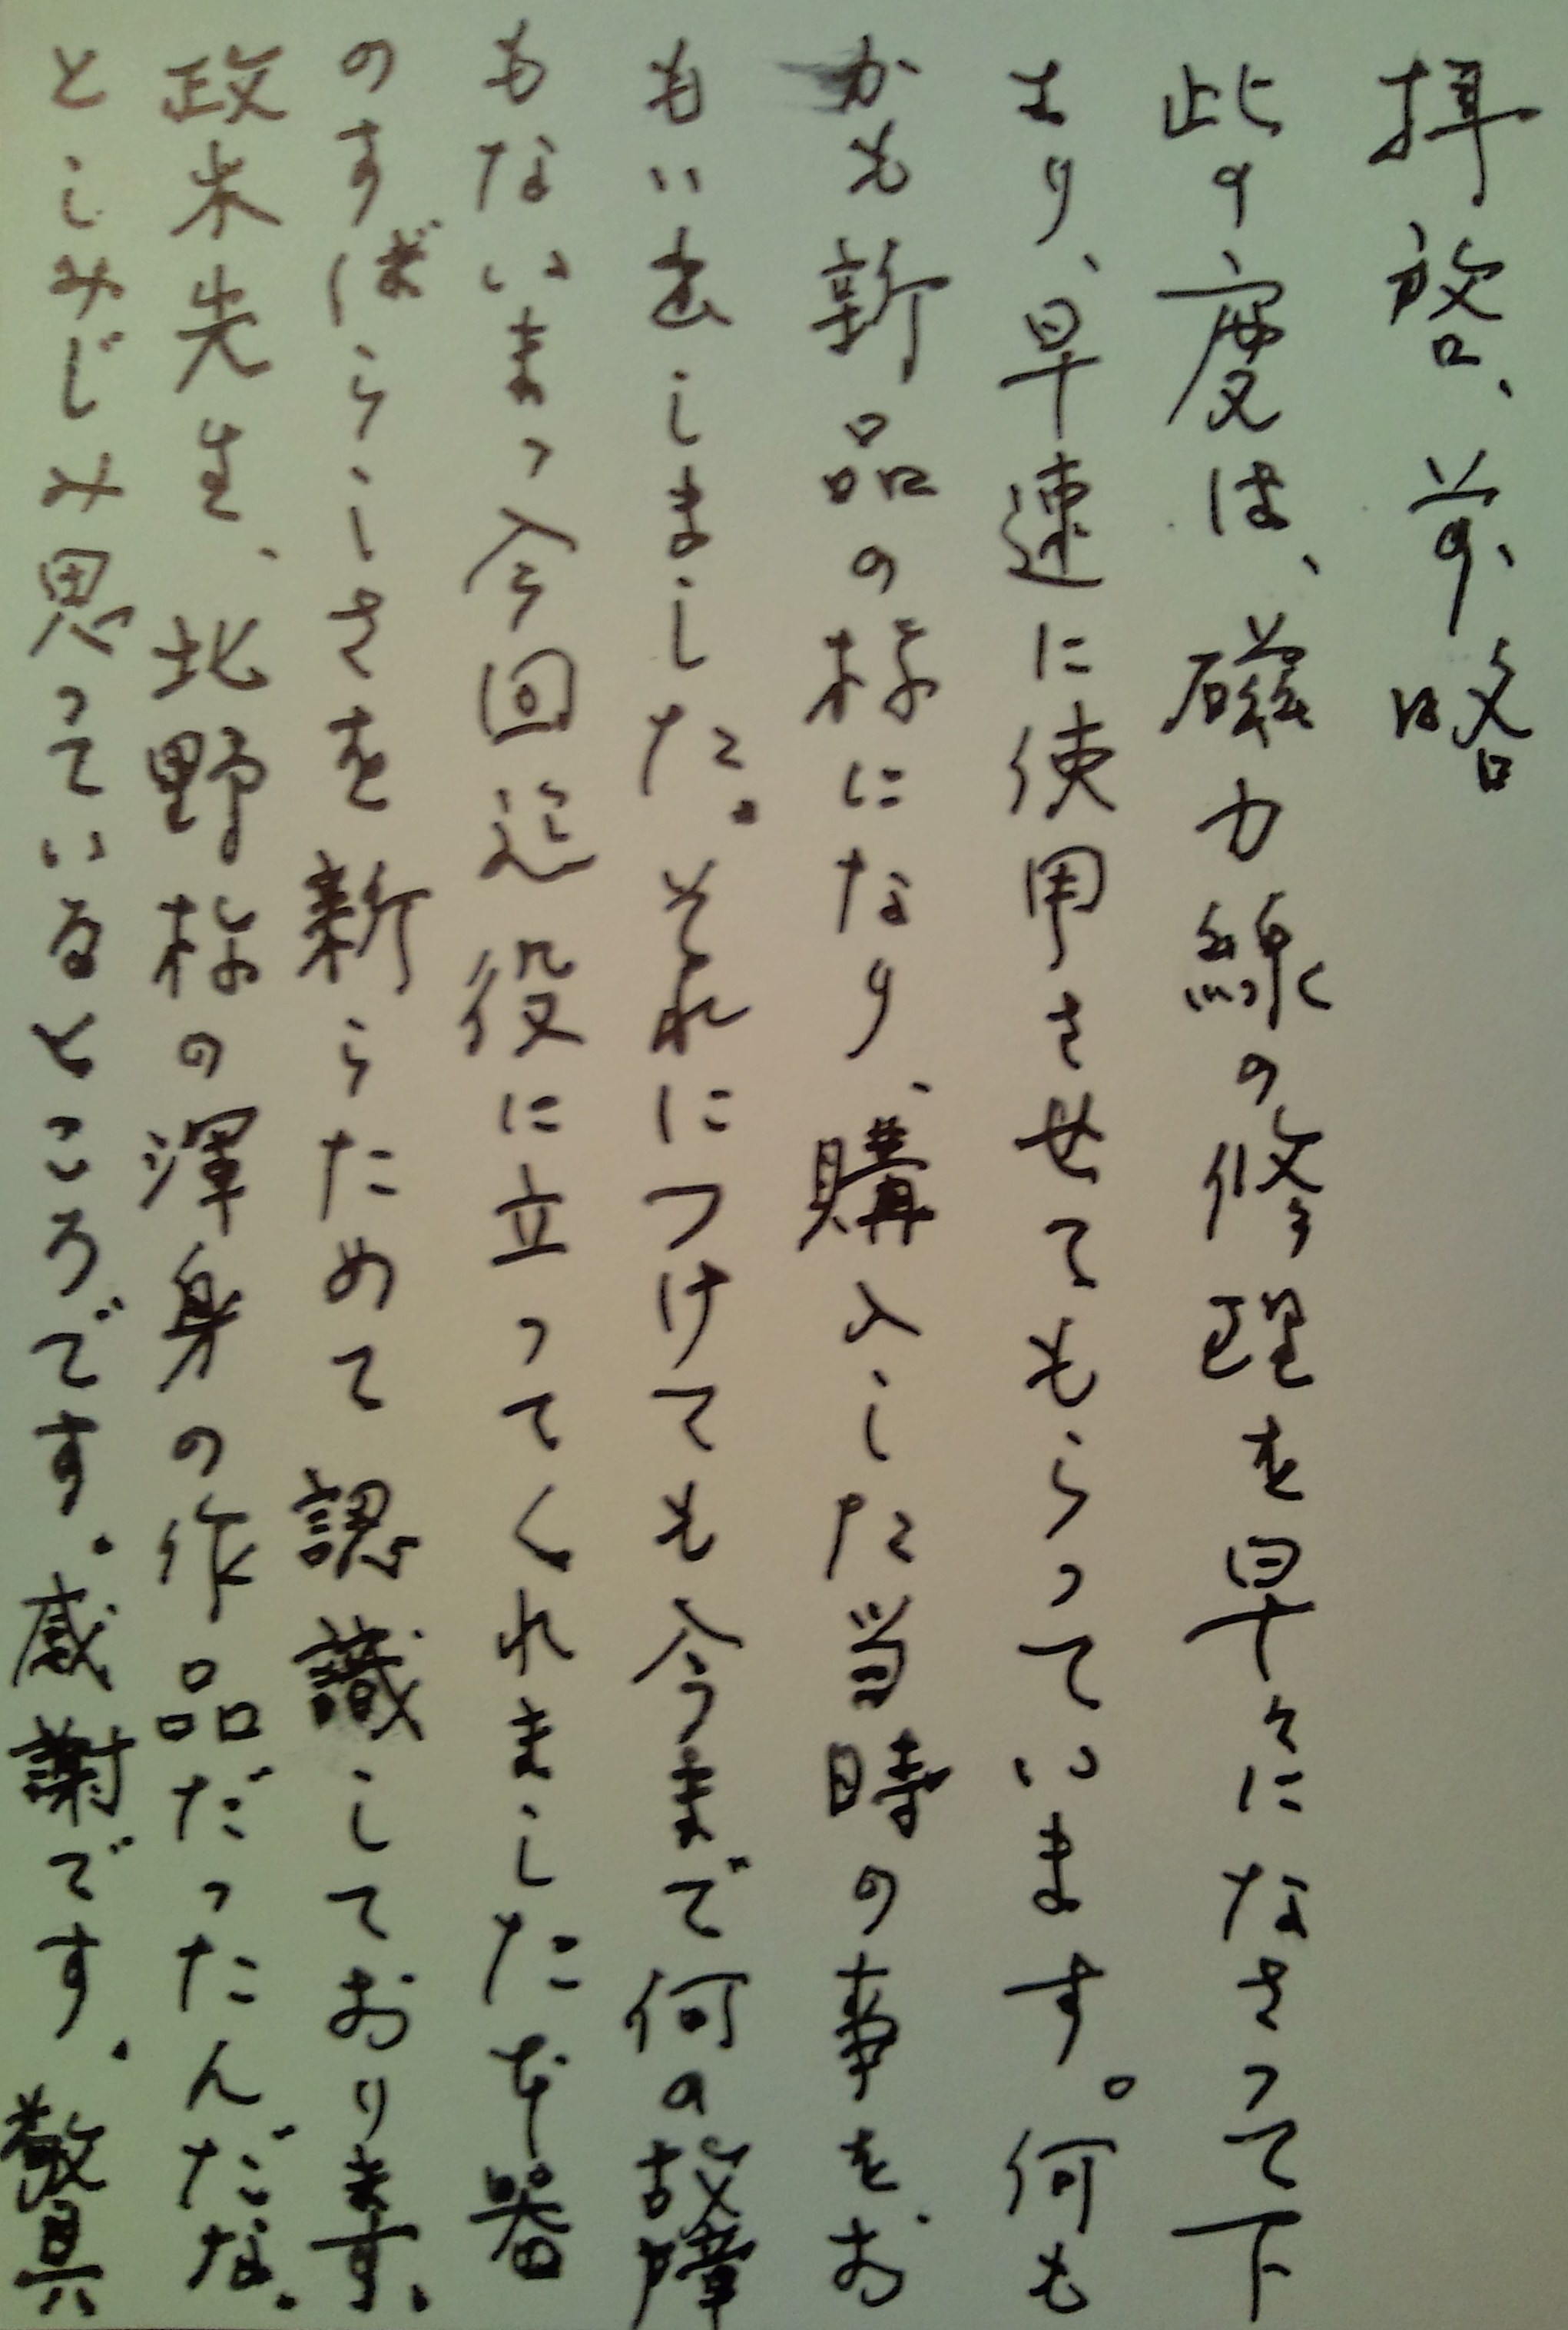 拝啓、前略
此の度は、磁力線の修理を早々になさって下
まり、早速に使用させてもらっています。何も
かも新品の様になり、購入した当時の事をお
もい出しました。それにつけても今まで何の故障
もないまっ今回迄役に立ってくれました本器
のすばらしさを新らためて認識しております。
政木先生、北野様の渾身の作品だったんだな。
としみじみ思っているところです。感謝です。敬具